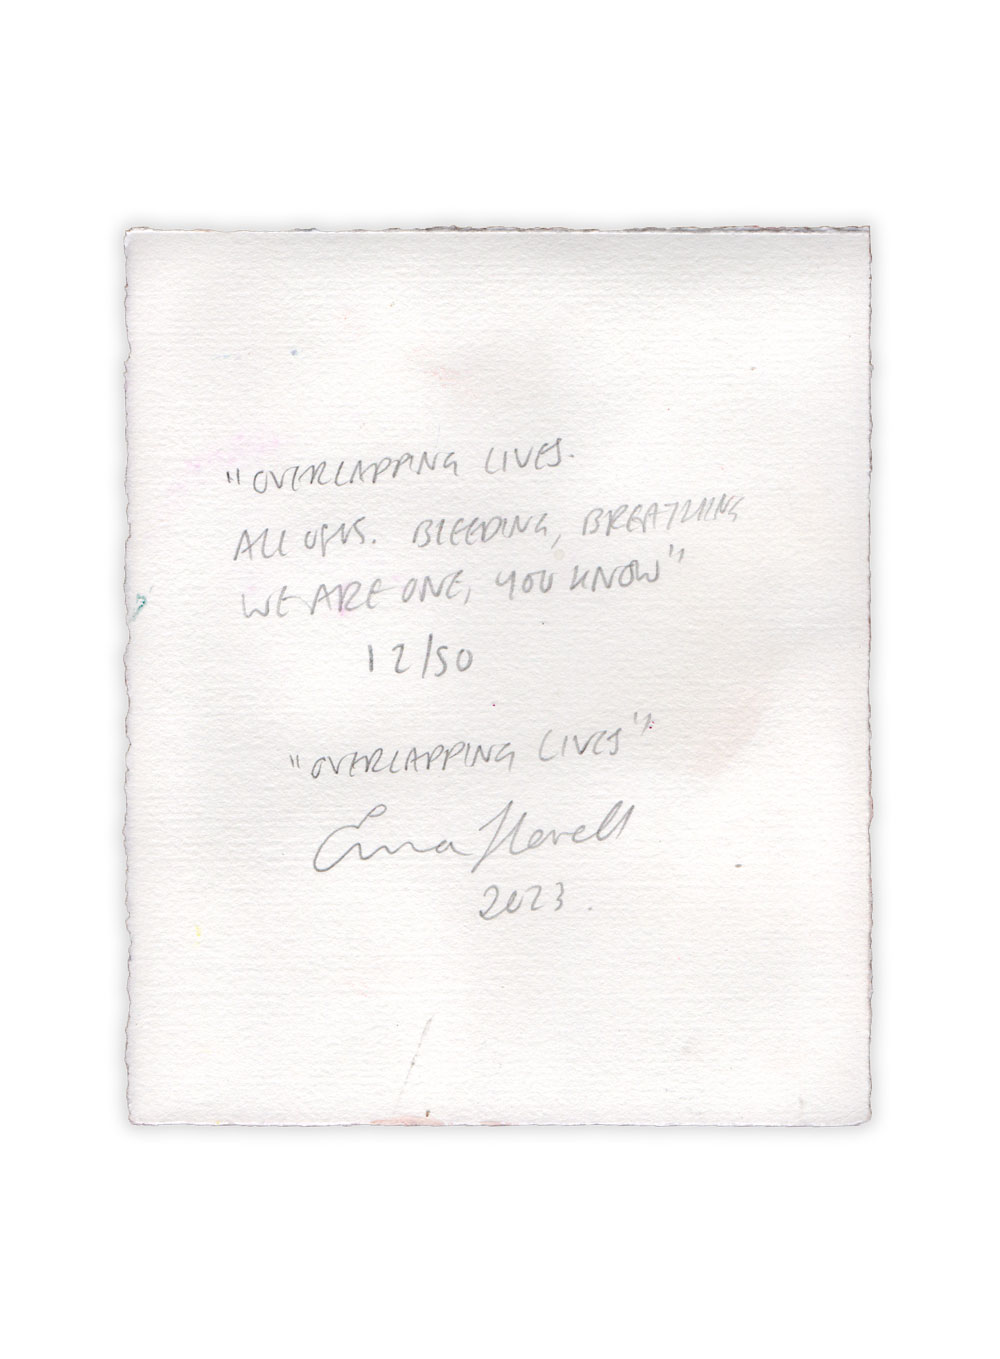 "OVERLAPPING LIVES.
ALL OF US. BLEEDING, BREATHING
WE ARE ONE, YOU KNOW"
12/50
"OVERLAPPING LIVES"
2023.